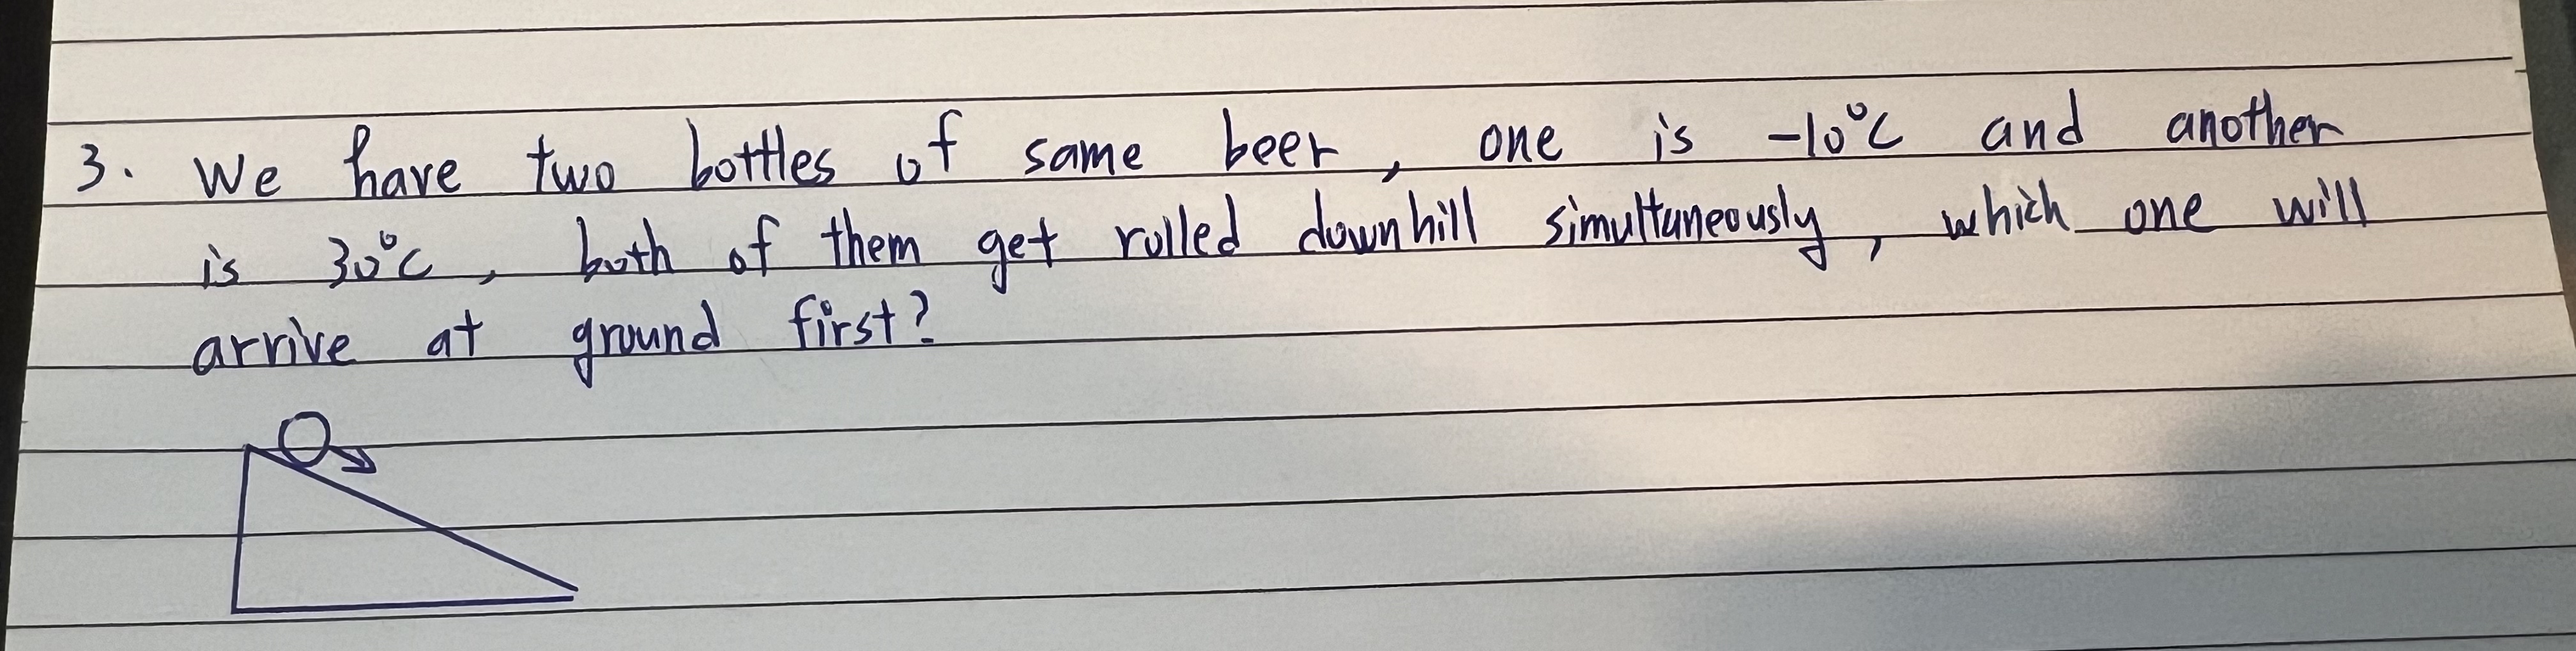 3. We have two bottles of same beer, one is -10°C and another
is 30°C, both of them get rolled downhill simultaneously, which one will
arrive at ground first?